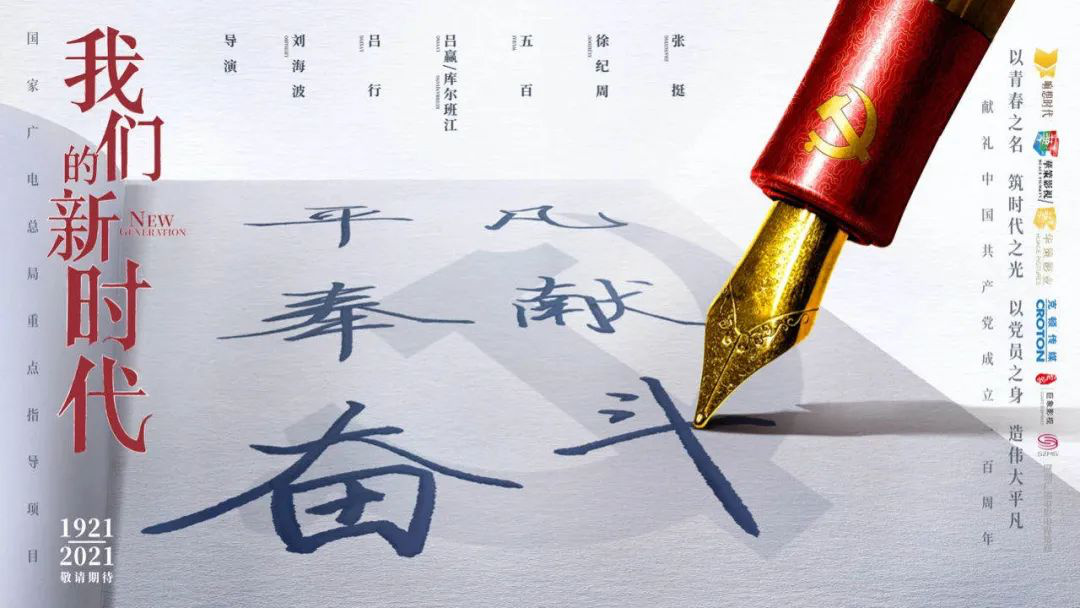 国家广电总局重点指导项目
我们的新时代
NEW
GENERATION
1921
2021
敬请期待
导演
刘海波
吕行
吕赢/库尔班江
五百
徐纪周
张挺
平凡
奉献
奋斗
以青春之名 筑时代之光 以党员之身 造伟大平凡
献礼中国共产党成立一百周年
响想时代
华策影视/
华策影业
克顿传媒
CROTON
SZMG